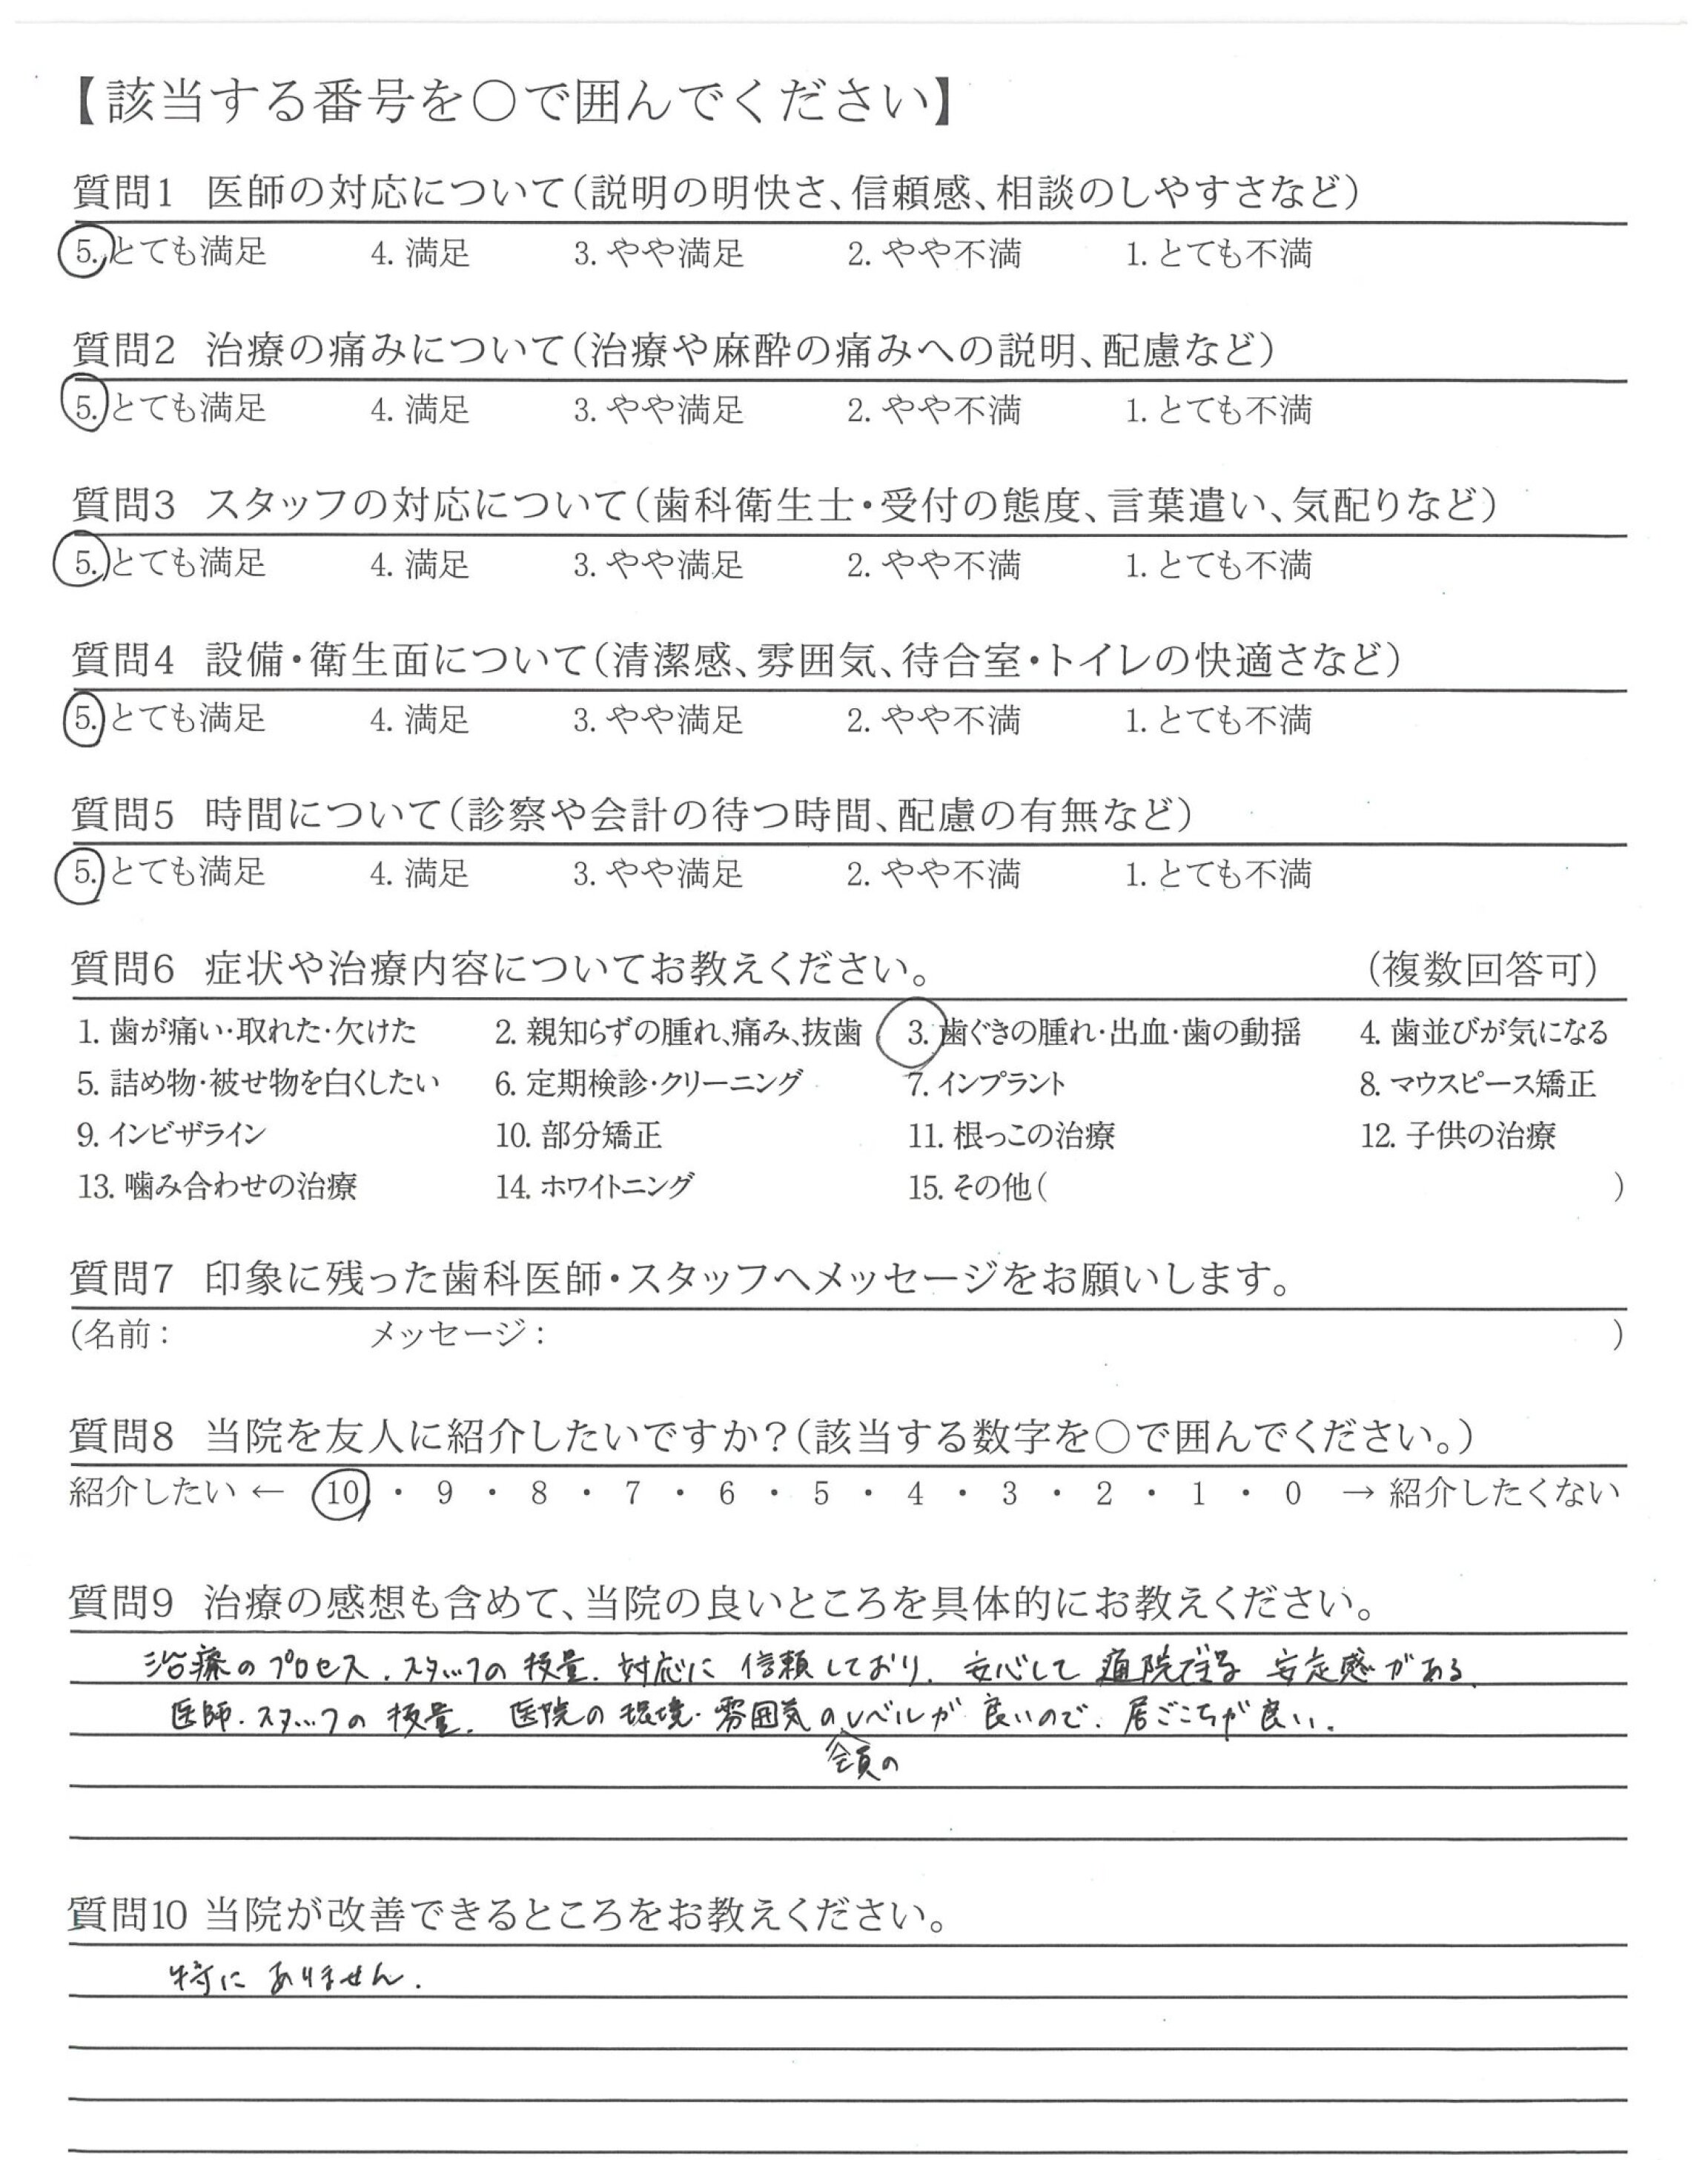 【該当する番号を〇で囲んでください】
質問1 医師の対応について(説明の明快さ、信頼感、相談のしやすさなど)
5. とても満足 4. 満足 3. やや満足 2. やや不満 1. とても不満
質問2 治療の痛みについて(治療や麻酔の痛みへの説明、配慮など)
5. とても満足 4. 満足 3. やや満足 2. やや不満 1. とても不満
質問3 スタッフの対応について(歯科衛生士・受付の態度、言葉遣い、気配りなど)
5. とても満足 4. 満足 3. やや満足 2. やや不満 1. とても不満
質問4 設備・衛生面について(清潔感、雰囲気、待合室・トイレの快適さなど)
5. とても満足 4. 満足 3. やや満足 2. やや不満 1. とても不満
質問5 時間について(診察や会計の待つ時間、配慮の有無など)
5. とても満足 4. 満足 3. やや満足 2. やや不満 1. とても不満
質問6 症状や治療内容についてお教えください。 (複数回答可)
1. 歯が痛い・取れた・欠けた 2. 親知らずの腫れ、痛み、抜歯 3. 歯ぐきの腫れ・出血・歯の動揺 4. 歯並びが気になる
5. 詰め物・被せ物を白くしたい 6. 定期検診・クリーニング 7. インプラント 8. マウスピース矯正
9. インビザライン 10. 部分矯正 11. 根っこの治療 12. 子供の治療
13. 噛み合わせの治療 14. ホワイトニング 15. その他( )
質問7 印象に残った歯科医師・スタッフへメッセージをお願いします。
(名前: メッセージ: )
質問8 当院を友人に紹介したいですか?(該当する数字を〇で囲んでください。)
紹介したい ← 10 ・ 9 ・ 8 ・ 7 ・ 6 ・ 5 ・ 4 ・ 3 ・ 2 ・ 1 ・ 0 → 紹介したくない
質問9 治療の感想も含めて、当院の良いところを具体的にお教えください。
治療のプロセス、スタッフの技量、対応に信頼しており、安心して通院できる安定感がある。
医師・スタッフの技量、医院の環境・雰囲気のレベルが良いので、居ごこちが良い。
全員の
質問10 当院が改善できるところをお教えください。
特にありません。